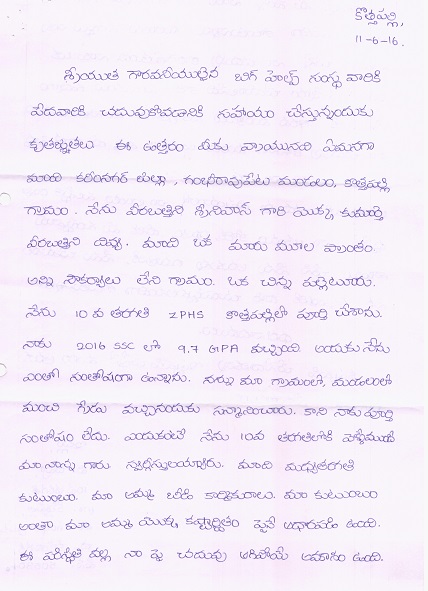 కొత్తపల్లి,
11-6-16.
శ్రీయుత గౌరవనీయులైన బిగ్ హెల్ప్ సంస్థ వారికి
పేదవారికి చదువుకోవడానికి సహాయం చేస్తున్నందుకు
కృతజ్ఞతలు ఈ ఉత్తరం మీకు వ్రాయునది ఏమనగా
మాది కరీంనగర్ జిల్లా, గంభీరావుపేట మండలం, కొత్తపల్లి
గ్రామం. నేను వీరబత్తిని శ్రీనివాస్ గారి యొక్క కుమార్తె
వీరబత్తిని దివ్య. మాది ఒక మారు మూల ప్రాంతం.
అన్ని సౌకర్యాలు లేని గ్రామం. ఒక చిన్న పల్లెటూరు.
నేను 10 వ తరగతి ZPHS కొత్తపల్లిలో పూర్తి చేశాను.
నాకు 2016 SSC లో 9.7 GPA వచ్చింది. అందుకు నేను
ఎంతో సంతోషంగా ఉన్నాను. నన్ను మా గ్రామంలో, మండలంలో
మంచి గ్రేడు వచ్చినందుకు సన్మానించారు. కాని నాకు పూర్తి
సంతోషం లేదు. ఎందుకంటే నేను 10వ తరగతిలోకి
మా నాన్న గారు స్వర్గస్తులయ్యారు. మాది మధ్యతరగతి
కుటుంబం. మా అమ్మ బీడీ కార్మికురాలు. మా కుటుంబం
అంతా మా అమ్మ యొక్క కష్టార్జితం పైనే ఆధారపడి ఉంది.
ఈ పరిస్థితి వల్ల నా పై చదువు ఆగిపోయే అవకాశం ఉంది.